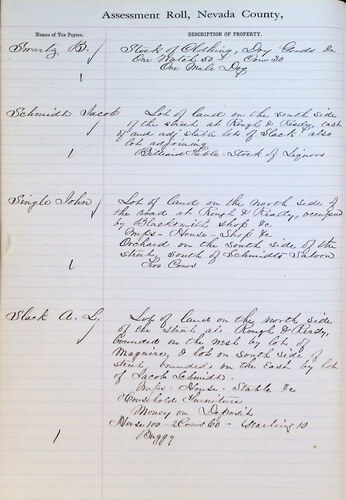 Assessment Roll, Nevada County,
Names of Tax Payers. DESCRIPTION OF PROPERTY.
Swartz B. Stock of Clothing, Dry Goods &c
One Watch 50 Cow 30
1 One Male Dog
Schmidt Jacob Lot of land on the south side
of the street at Rough & Ready, east
of and adj stable lot of Slack also
lot adjoining
1 Billiard Table - Stock of Liquors
Single John Lot of land on the north side of
the road at Rough & Ready, occupied
by Blacksmith Shop &c
Imps - House - Shop &c
Orchard on the south side of the
street, south of Schmidts Saloon
1 Two Cows
Slack A. L. Lot of land on the north side
of the street at Rough & Ready,
bounded on the west by lot of
Maguire, & lot on south side of
street bounded on the East by lot
of Jacob Schmidt.
Imps - House - Stable &c
Household Furniture
Money on Deposit
Horse 100 - 2 Cows 60 - 10
1 Buggy